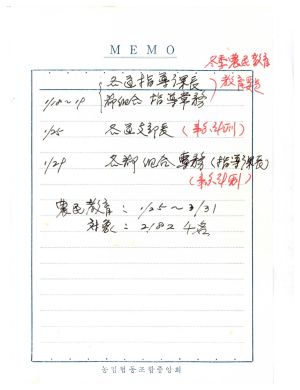 MEMO
冬季農民教育
教育要
各道指導課長
1/18~19 郡組合指導常務
1/25 各道支部長 (事業計劃)
1/29 各郡組合 專務 (指導課長)
(事業計劃)
農民教育 : 1/25 ~ 3/31
対象 : 2182
농업협동조합중앙회